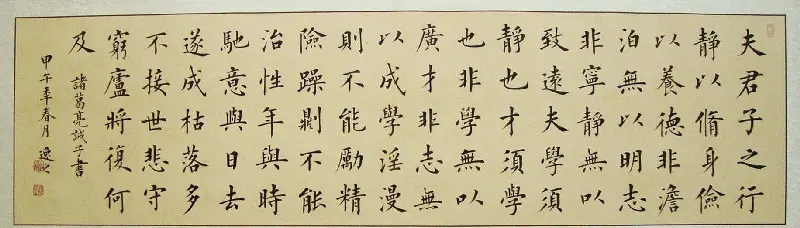 夫君子之行
靜以脩身儉
以養德非澹
泊無以明志
非寧靜無以
致遠夫學須
靜也才須學
也非學無以
廣才非志無
以成學淫漫
則不能勵精
險躁剿不能
治性年與時
馳意與日去
遂成枯落多
不接世悲守
窮廬將復何
及
諸葛亮誡子書
甲午年春月逸